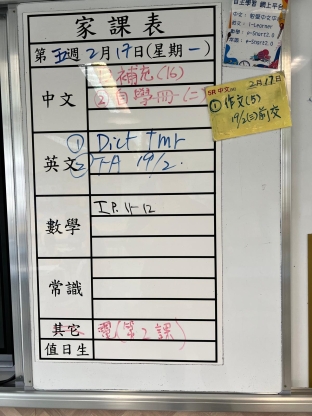 家課表
第五週2月17日(星期一)
中文
補充(16)
② 自學冊(二)
英文
① Dict tmr
② TA 19/2.
數學
I.P. 11-12
常識
其它
(第2課)
值日生
自主學習 網上平台
2月17日
5R 中文
① 作文(5)
19/2(三)前交